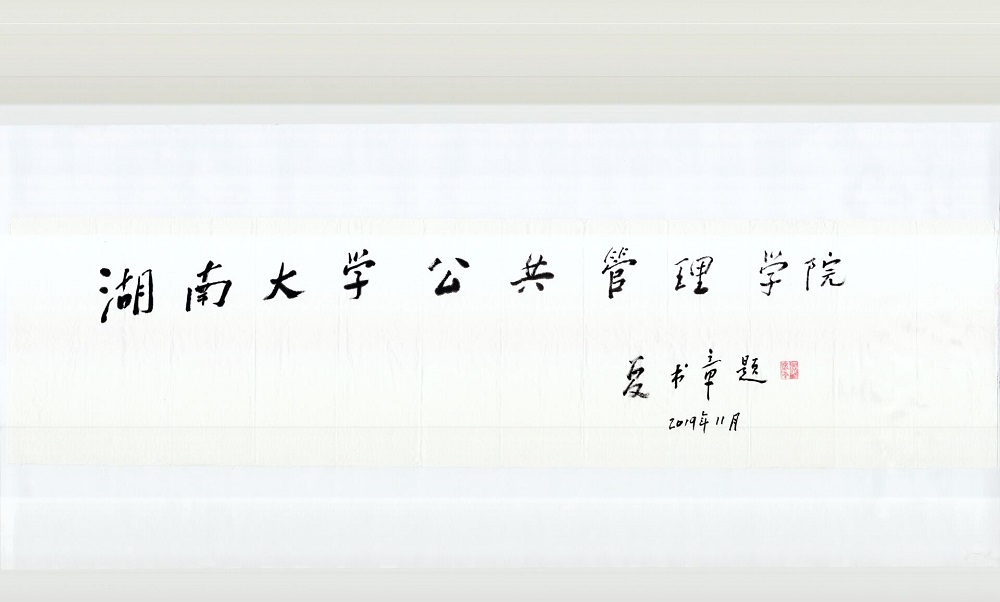 湖南大学公共管理学院
夏书章题
2019年11月